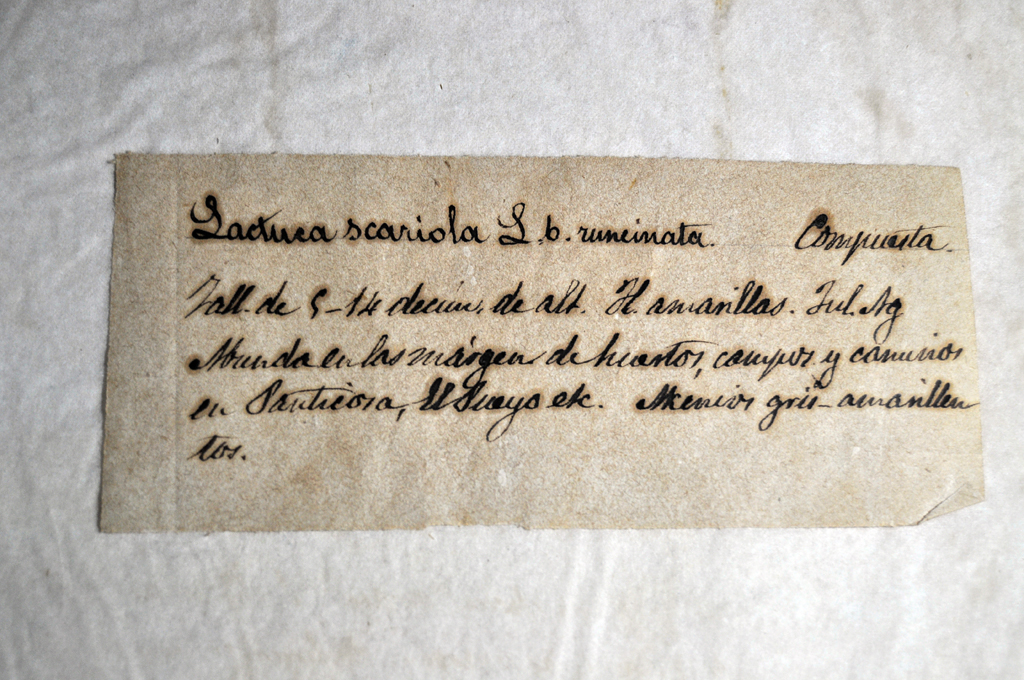 Lactuca scariola L. b. runcinata. Compuesta.
Tall. de 5-14 decím. de alt. Fl. amarillas. Jul. Ag
Abunda en las márgen de huertos, campos y caminos
en Panticosa, El Pueyo etc. Akenios gris-amarillen
tos.